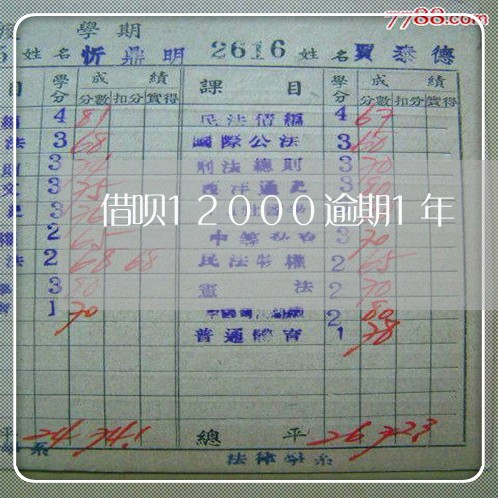 7788.com
學期
姓名 忻鼎明 2616 姓名 賈泰德
目 學分 成績 課目 學分 成績
分數 扣分 實得 分數 扣分 實得
4 81 民法債編 4 67
法 3 68 國際公法 3 60
3 刑法總則 3 70
3 75 西洋通史 3 80
借呗12000逾期1年
2 65 3 70
法 2 68 68 民法物權 2 65
3 80 憲法 2 70
1 70 2 80
普通體育 1 78
平 24 74.1 總平 26 72.3
系 法律學系